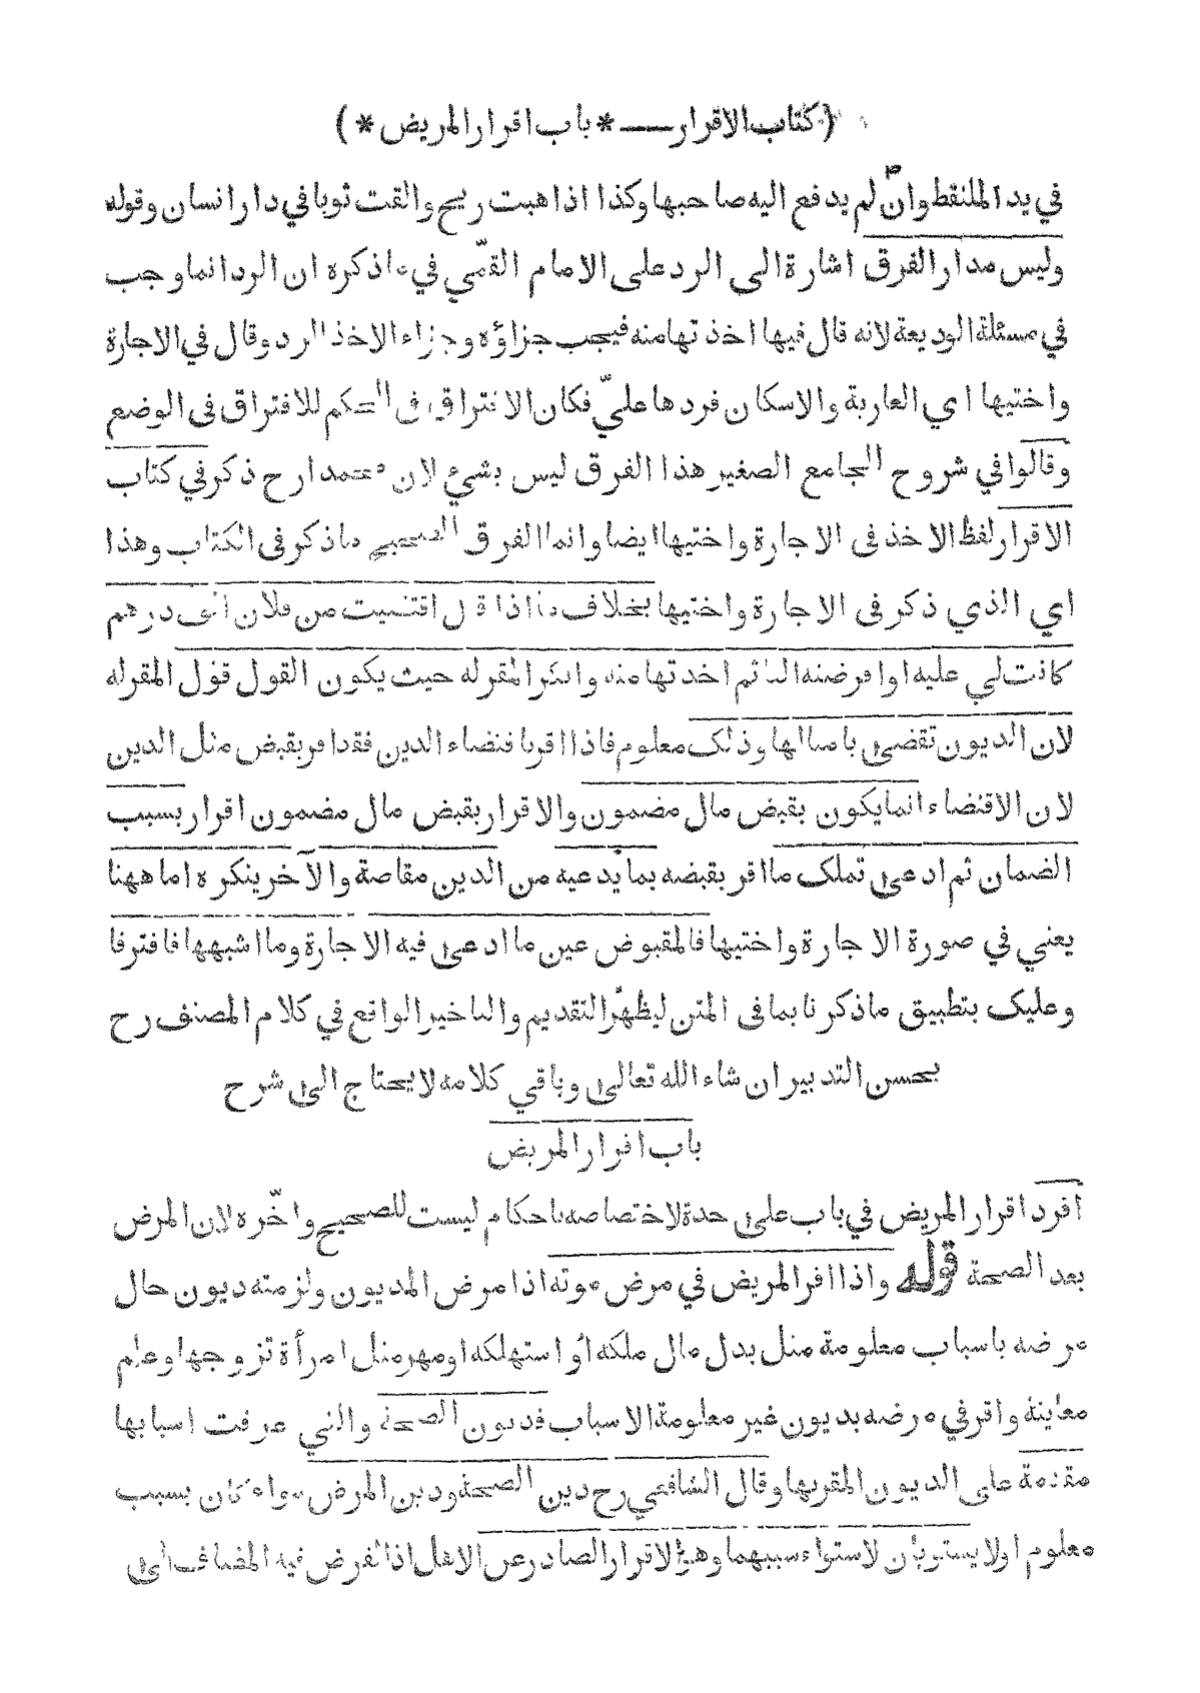 (كتاب الاقرار ـــ * باب اقرار المريض *)
في يد الملتقط وان لم يدفع اليه صاحبها وكذا اذا هبت ريح والقت ثوبا في دار انسان وقوله
وليس مدار الفرق اشارة الى الرد على الامام القمّي في ما ذكره ان الرد انما وجب
في مسئلة الوديعة لانه قال فيها اخذتها منه فيجب جزاؤه وجزاء الاخذ الرد وقال في الاجارة
واختيها اي العارية والاسكان فردها عليّ فكان الافتراق في الحكم للافتراق في الوضع
وقالوا في شروح الجامع الصغير هذا الفرق ليس بشيء لان محمدا رح ذكر في كتاب
الاقرار لفظ الاخذ في الاجارة واختيها ايضا وانما الفرق الصحيح ما ذكر في الكتاب وهذا
اي الذي ذكر في الاجارة واختيها بخلاف ما اذا قال اقتضيت من فلان الف درهم
كانت لي عليه او اقرضته الفا ثم اخذتها منه وانكر المقر له حيث يكون القول قول المقر له
لان الديون تقضى بامثالها وذلك معلوم فاذا اقر باقتضاء الدين فقد اقر بقبض مثل الدين
لان الاقتضاء انما يكون بقبض مال مضمون والاقرار بقبض مال مضمون اقرار بسبب
الضمان ثم ادعى تملك ما اقر بقبضه بما يدعيه من الدين مقاصة والآخر ينكره اما ههنا
يعني في صورة الاجارة واختيها فالمقبوض عين ما ادعى فيه الاجارة وما اشبهها فافترقا
وعليك بتطبيق ما ذكرنا بما في المتن ليظهر التقديم والتاخير الواقع في كلام المصنف رح
بحسن التدبير ان شاء الله تعالى وباقي كلامه لا يحتاج الى شرح
باب اقرار المريض
افرد اقرار المريض في باب على حدة لاختصاصه باحكام ليست للصحيح واخّره لان المرض
بعد الصحة قوله واذا اقر المريض في مرض موته اذا مرض المديون ولزمته ديون حال
مرضه باسباب معلومة مثل بدل مال ملكه او استهلكه او مهر مثل امرأة تزوجها وعلم
معاينة واقر في مرضه بديون غير معلومة الاسباب فديون الصحة والتي عرفت اسبابها
مقدمة على الديون المقر بها وقال الشافعي رح دين الصحة ودين المرض سواء كان بسبب
معلوم اولا يستويان لاستواء سببهما وهو الاقرار الصادر عن الاهل اذ الفرض فيه المضاف الى